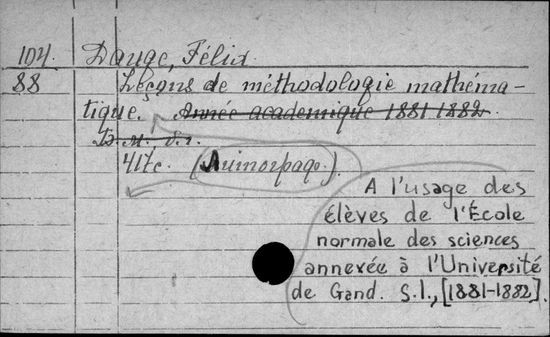 104. Dauge, Félix.
88 Leçons de méthodologie mathéma-
tique. Année academique 1881 1882.
417c. (Аитограф.).
A l'usage des
élèves de l'École
normale des sciences
annexée à l'Université
de Gand. S.l., [1881-1882].